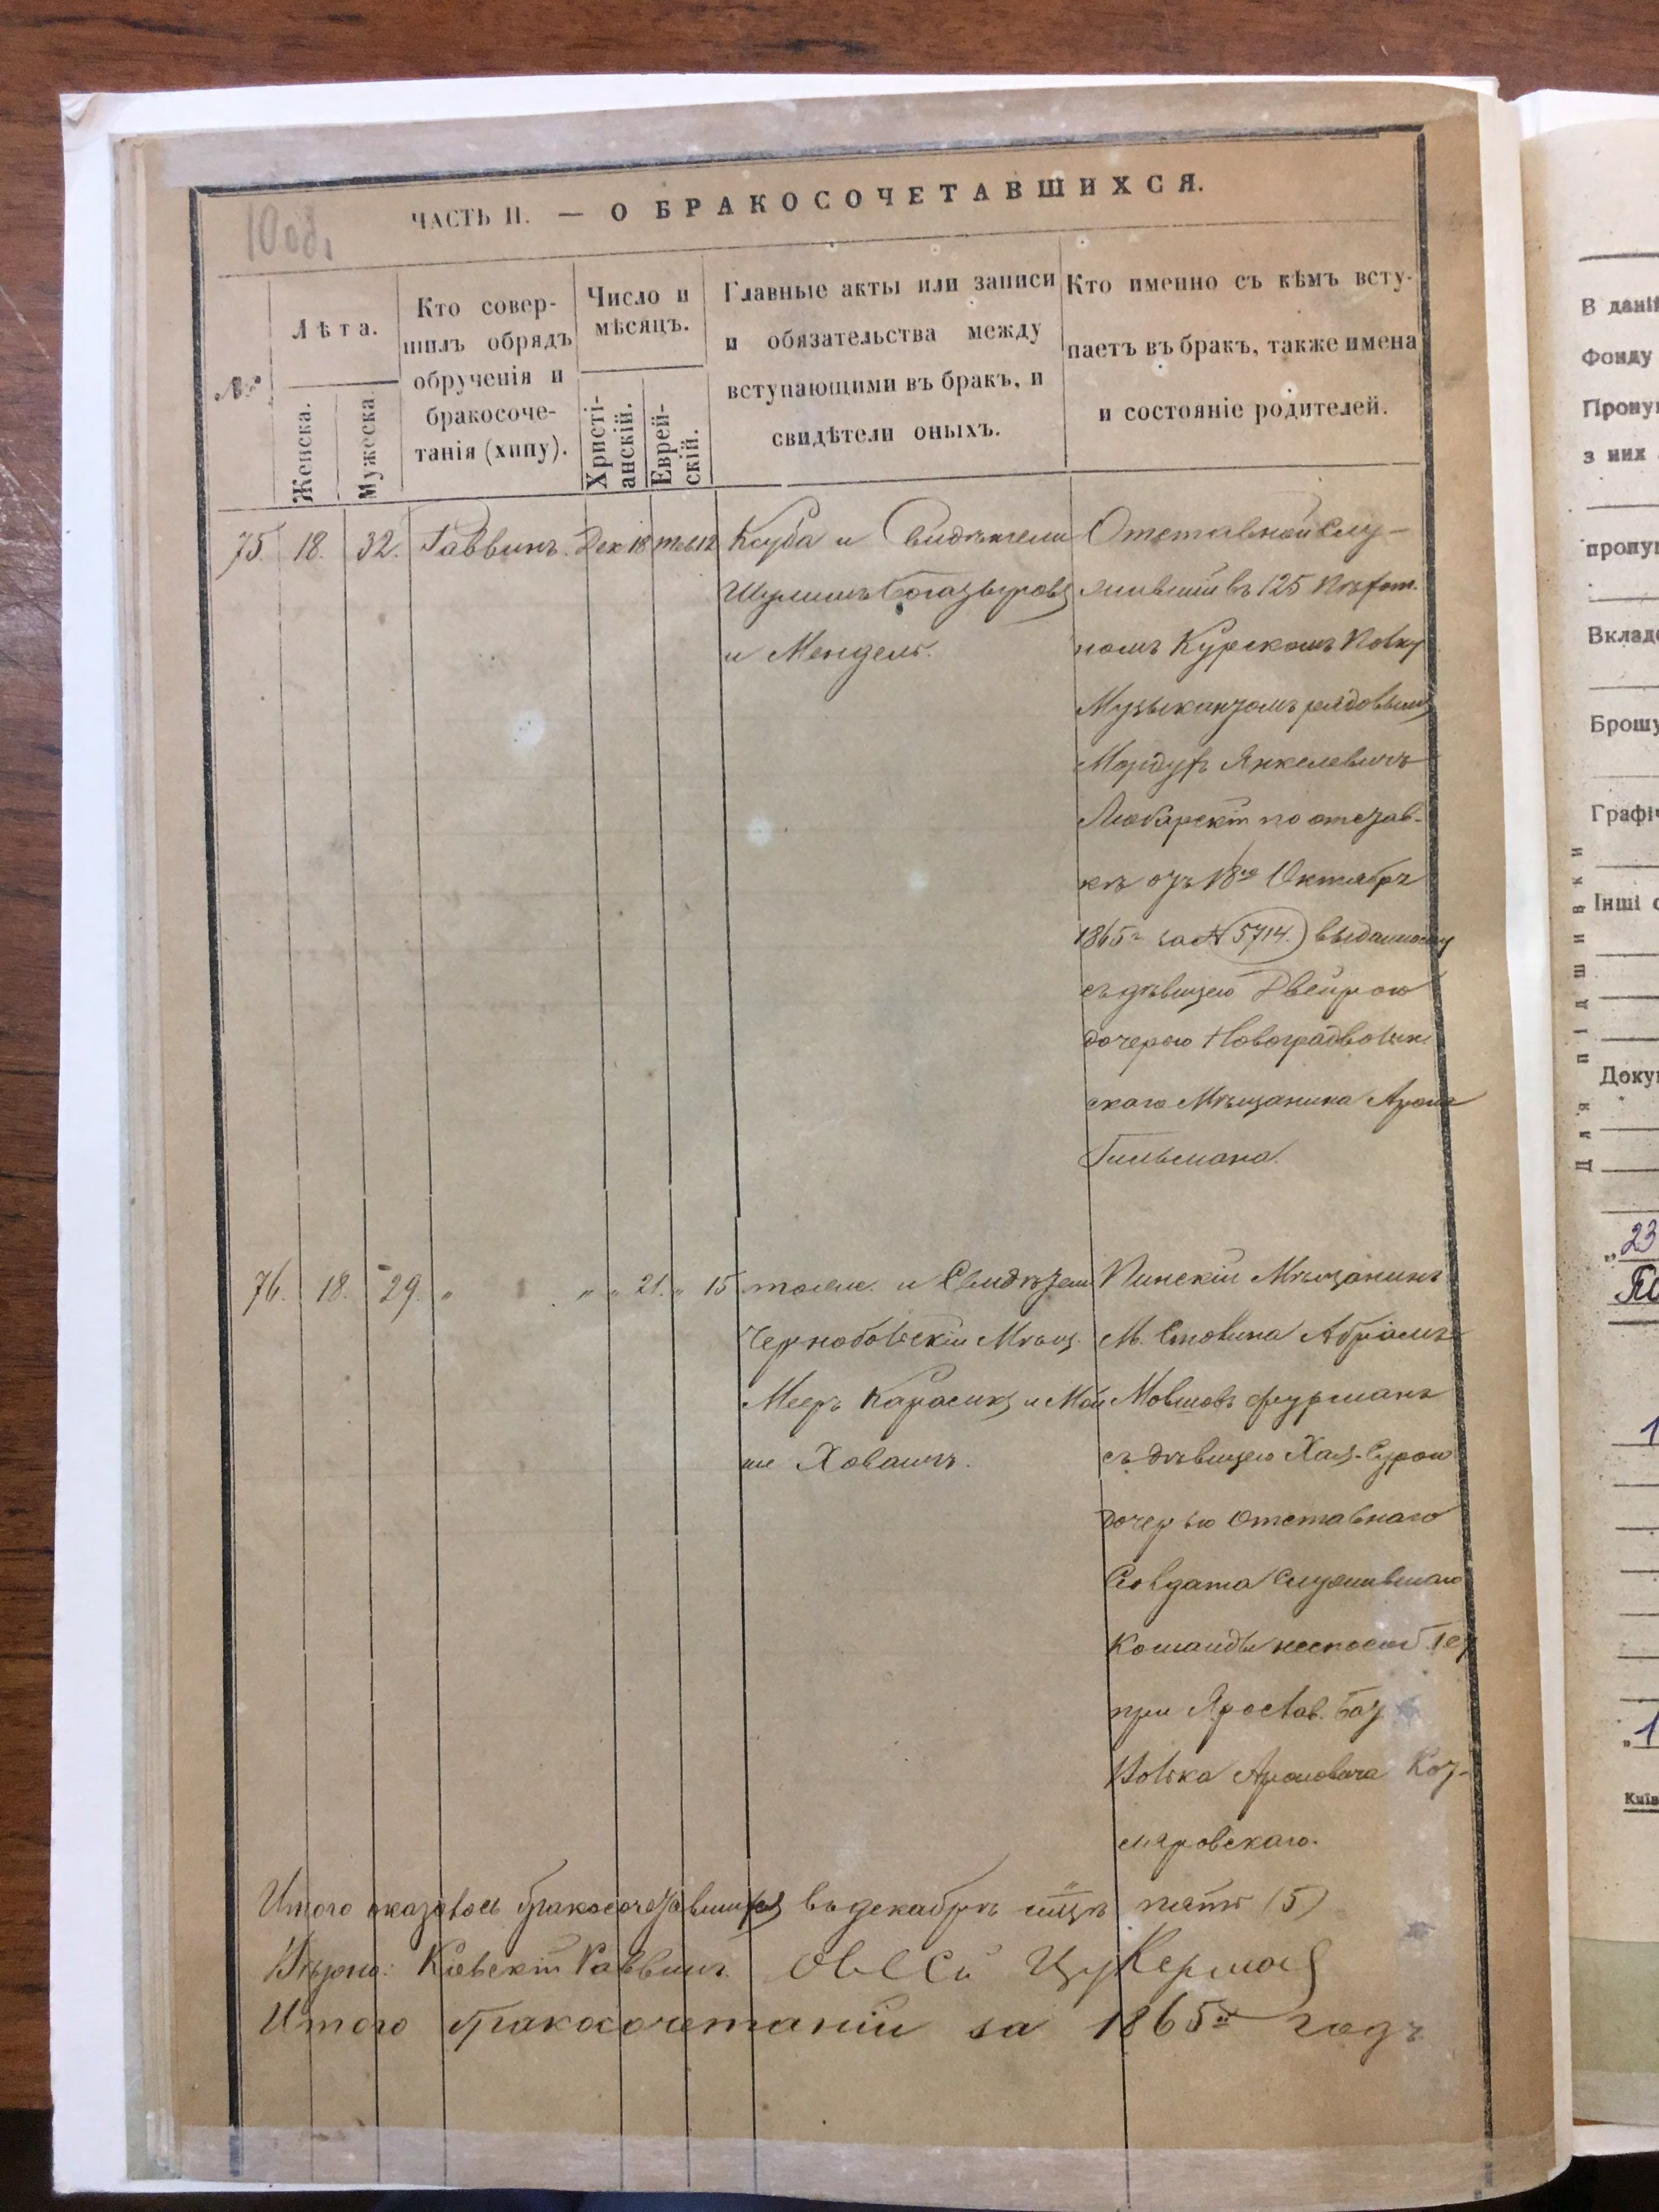 10 об.
ЧАСТЬ II. — О БРАКОСОЧЕТАВШИХСЯ.
№
Лѣта.
Женска.
Мужеска.
Кто совер-
шилъ обрядъ
обрученія и
бракосоче-
танія (хипу).
Число и
мѣсяцъ.
Христі-
анскій.
Еврей-
скій.
Главные акты или записи
и обязательства между
вступающими въ бракъ, и
свидѣтели оныхъ.
Кто именно съ кѣмъ всту-
паетъ въ бракъ, также имена
и состояніе родителей.
75. 18. 32. Раввинъ. Дек 18 Тев 12
Ксуба и Свидѣтели
Шулимъ
и Мендель.
Отставной Слу-
жившій въ 125 Пѣхот.
номъ Курскомъ Полку
Музыкантомъ рядовымъ
Мордухъ Янкелевичъ
Любарскій по отстав-
кѣ отъ 18го Октября
1865 г за № 5714. выданному
съ дѣвицею Двейрою
дочерою Новоградволын
скаго Мѣщанина Арона
Гильмана.
76. 18. 29. " " " 21. " 15
тоже. и Свидѣтели
Чернобольскій Мѣщ.
Мееръ Карасикъ и Мой
ше
Пинскій Мѣщанинъ
М. Столина Абрамъ
Мовшовъ Фурманъ
съ дѣвицею Хая-Сурою
дочерью Отставнаго
Солдата Служившаго
Команды неспособ.
при Ярослав. бат
Волька Ароновича Кот-
ляровскаго.
Итого оказалось бракосочетавшихся въ декабрѣ мцѣ пять (5)
Вѣрно: Кіевскій Раввинъ Овсей Цукерман
Итого бракосочетаній за 1865й годъ
В дані
Фонду
Прону
з них
прону
Вклад
Брошу
Графі
Інші
Доку
Для підшивки
„23
1
„1
Київ